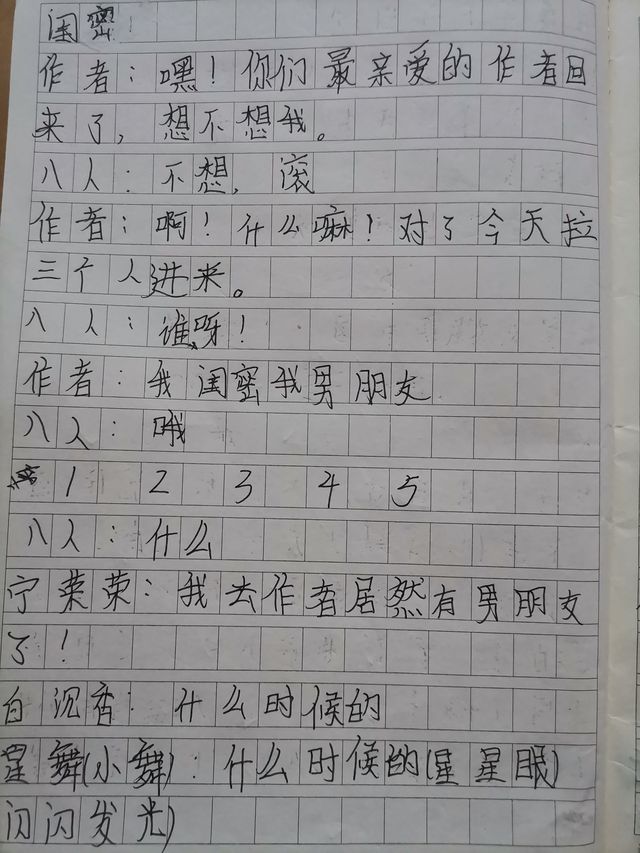 闺蜜!
作者：嘿！你们最亲爱的作者回
来了，想不想我。
八人：不想，滚
作者：啊！什么嘛！对了今天拉
三个人进来。
八人：谁呀！
作者：我闺蜜我男朋友
八人：哦
1 2 3 4 5
八人：什么
宁荣荣：我去作者居然有男朋友
了！
白沉香：什么时候的
星舞(小舞)：什么时候的(星星眼)
闪闪发光)